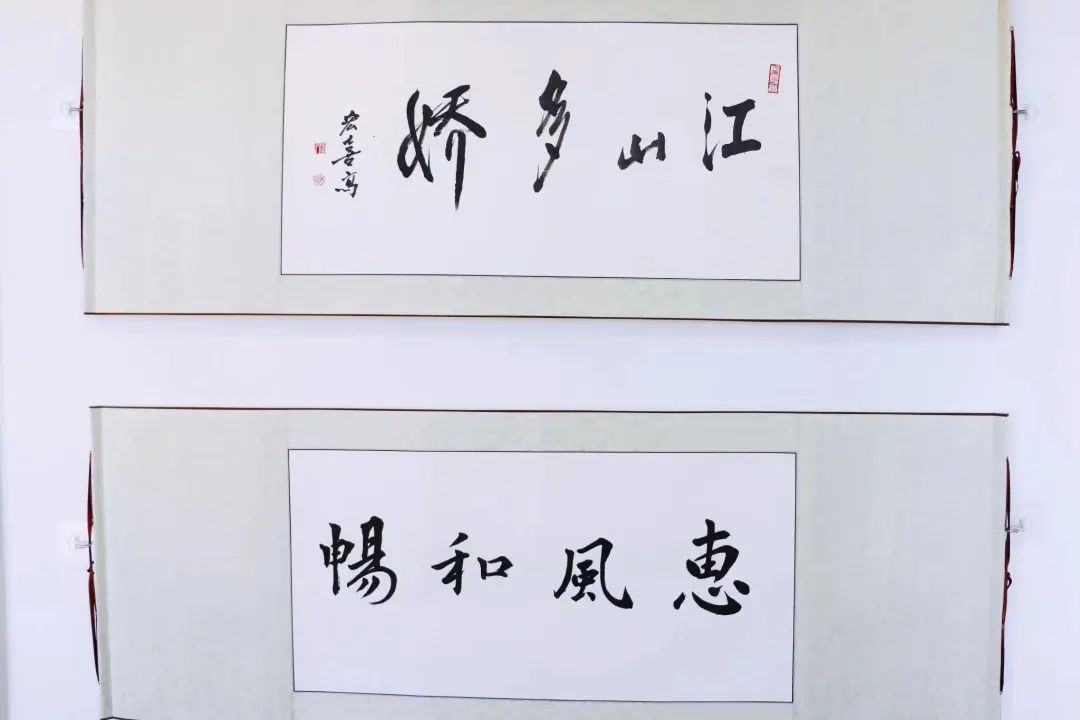 江山多娇
宏喜写
惠風和暢